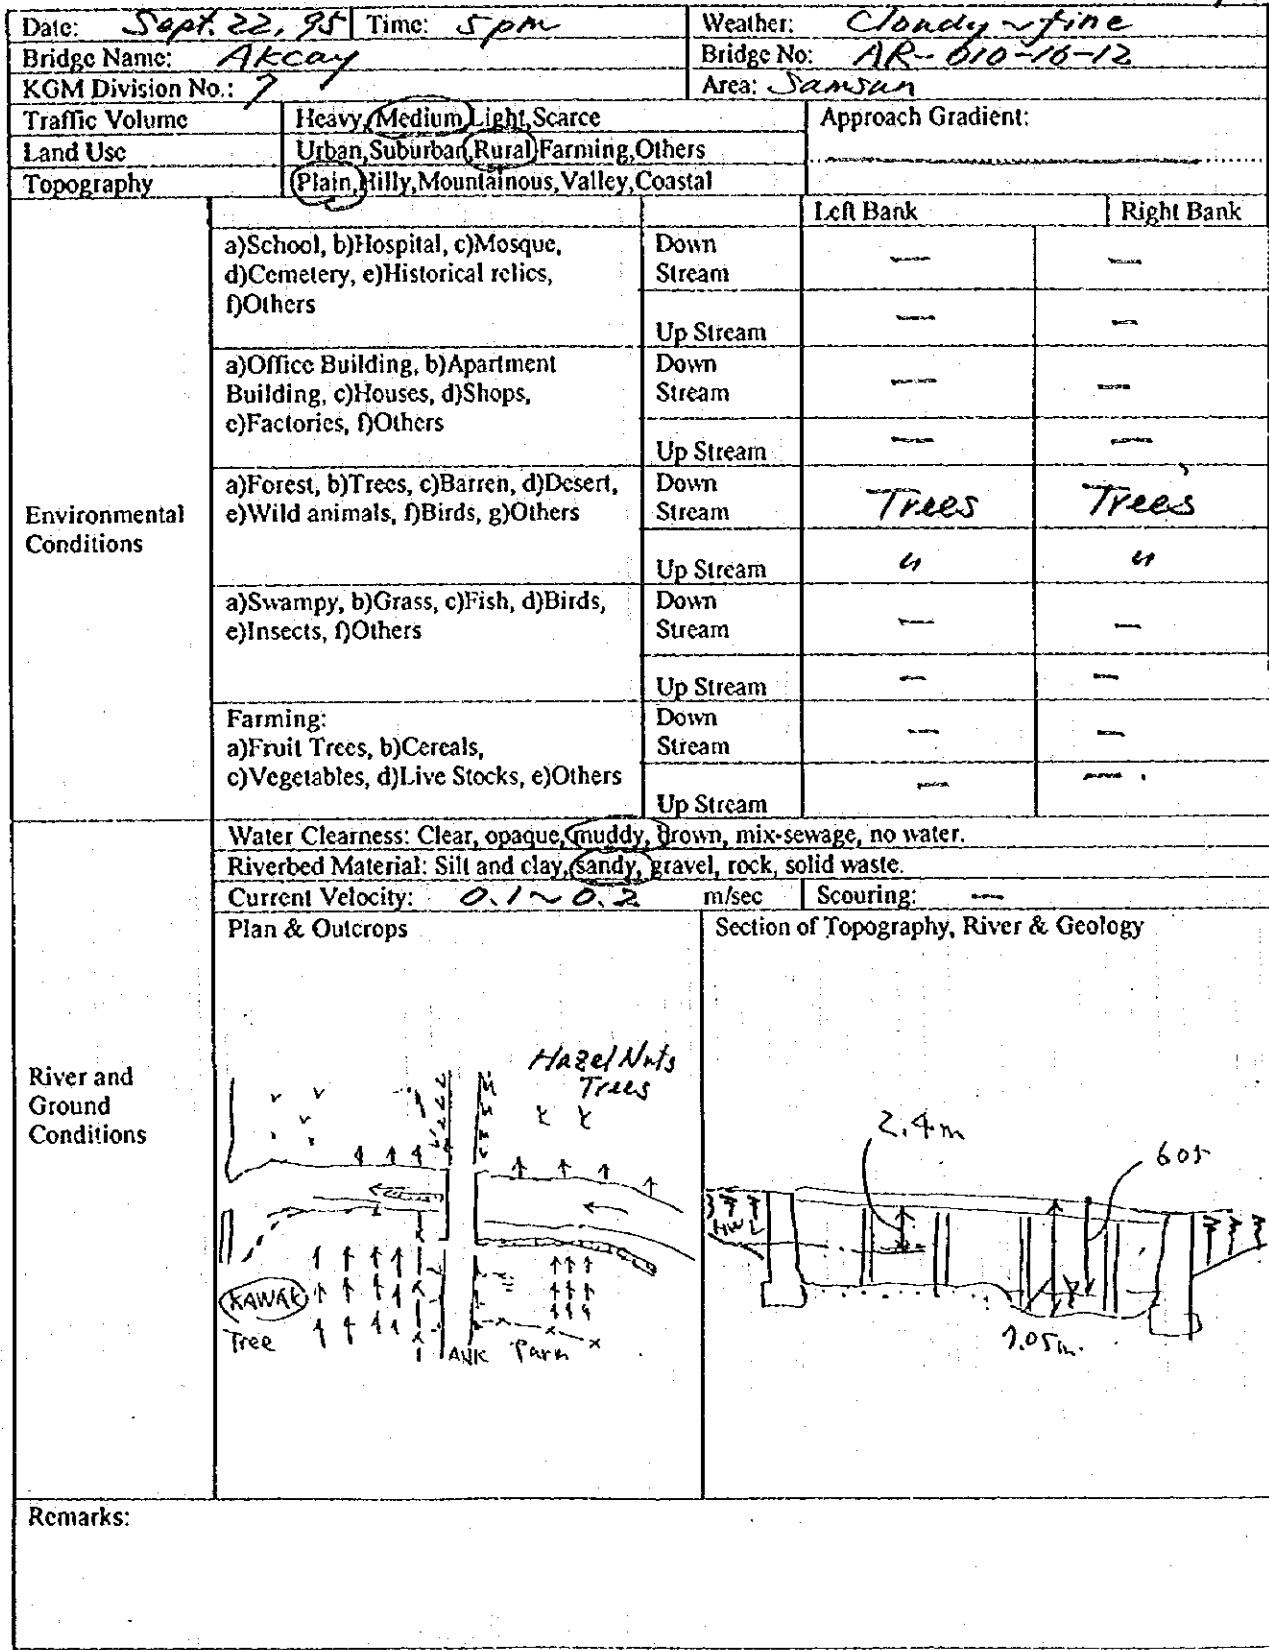 Date: Sept. 22, 95 Time: 5 pm Weather: Cloudy ~ fine
Bridge Name: Akcay Bridge No: AR-010-16-12
KGM Division No.: 7 Area: Samsun
Traffic Volume Heavy, Medium, Light, Scarce Approach Gradient:
Land Use Urban, Suburban, Rural, Farming, Others
Topography Plain, Hilly, Mountainous, Valley, Coastal
Left Bank Right Bank
Environmental Conditions
a)School, b)Hospital, c)Mosque,
d)Cemetery, e)Historical relics,
f)Others
Down Stream — —
Up Stream — —
a)Office Building, b)Apartment
Building, c)Houses, d)Shops,
e)Factories, f)Others
Down Stream — —
Up Stream — —
a)Forest, b)Trees, c)Barren, d)Desert,
e)Wild animals, f)Birds, g)Others
Down Stream Trees Trees
Up Stream 〃 〃
a)Swampy, b)Grass, c)Fish, d)Birds,
e)Insects, f)Others
Down Stream — —
Up Stream — —
Farming:
a)Fruit Trees, b)Cereals,
c)Vegetables, d)Live Stocks, e)Others
Down Stream — —
Up Stream — —
River and Ground Conditions
Water Clearness: Clear, opaque, muddy, brown, mix-sewage, no water.
Riverbed Material: Silt and clay, sandy, gravel, rock, solid waste.
Current Velocity: 0.1 ~ 0.2 m/sec Scouring: —
Plan & Outcrops Section of Topography, River & Geology
Hazel Nuts
Trees
KAWAK
Tree
2.4 m
605
HWL
7.05 m.
Remarks: